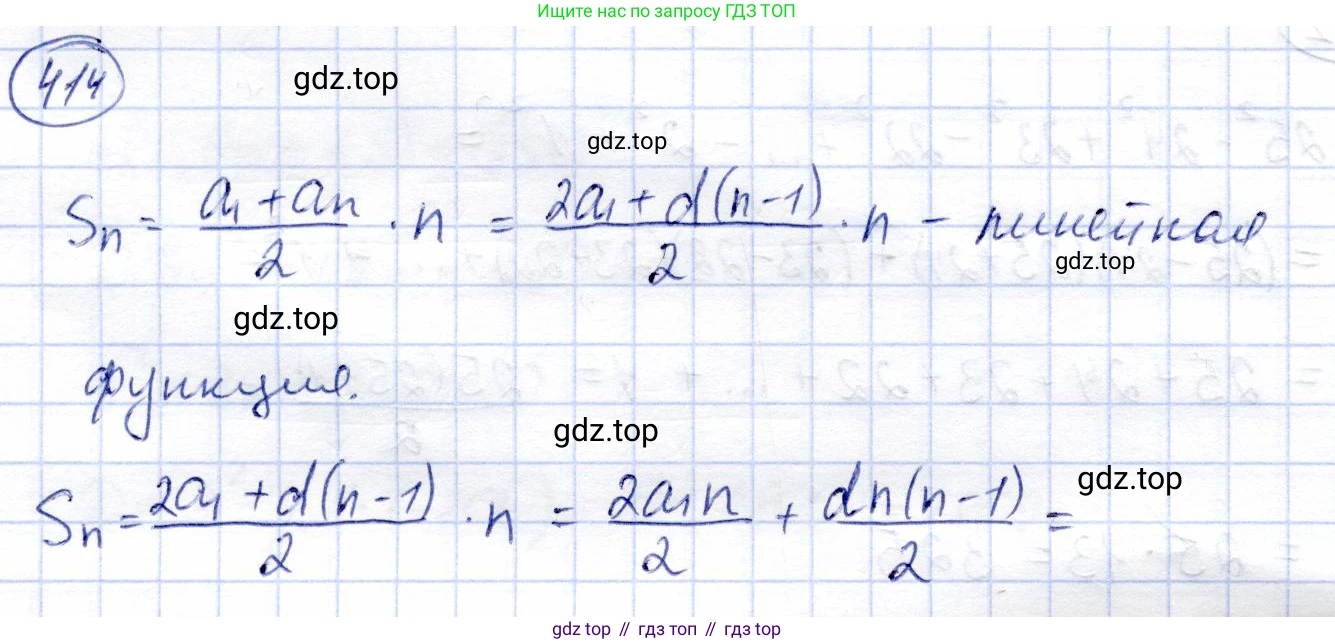 Ищите нас по запросу ГДЗ ТОП
414
gdz.top
gdz.top
Sn = (a₁ + an)/2 · n = (2a₁ + d(n-1))/2 · n - линейная
gdz.top
gdz.top
функция.
gdz.top
gdz.top
Sn = (2a₁ + d(n-1))/2 · n = 2a₁n/2 + dn(n-1)/2 =
gdz top // гдз топ // гдз top